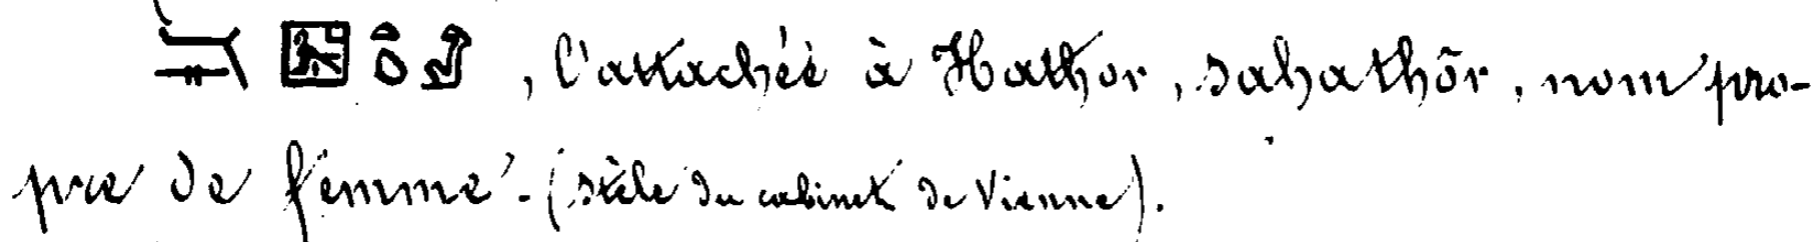 , l'attachéè à Hathor, sahathôr, nom pro-
pre de femme. (stèle du cabinet de Vienne).